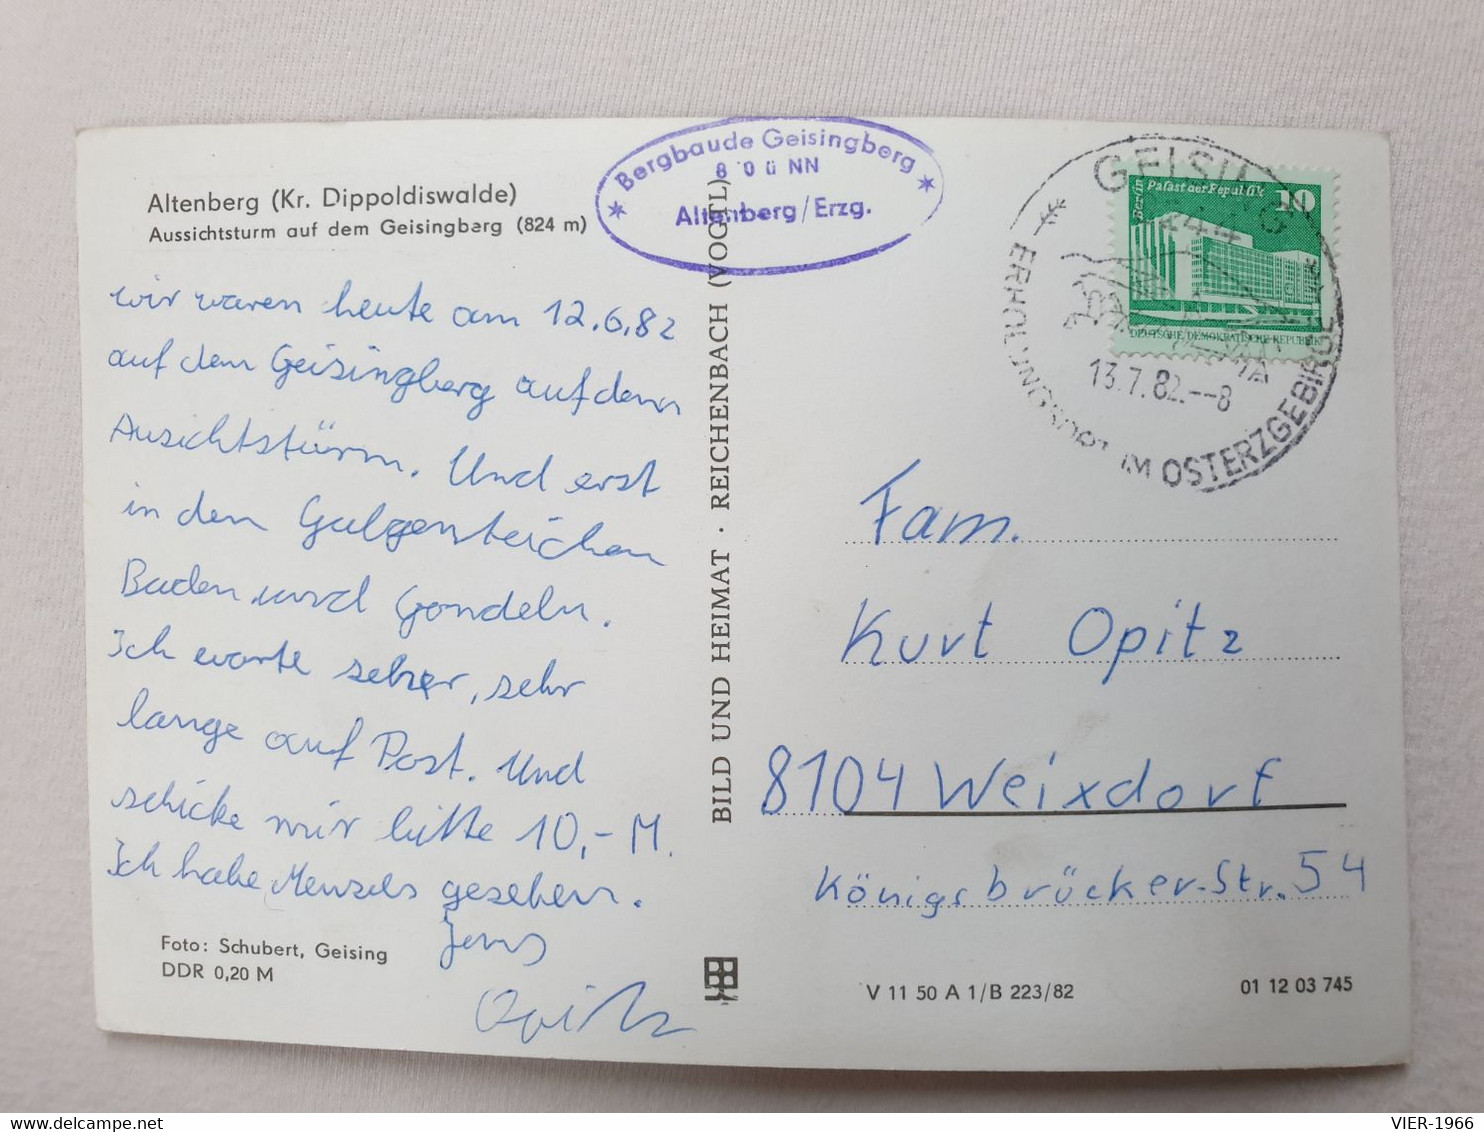 Altenberg (Kr. Dippoldiswalde)
Aussichtsturm auf dem Geisingberg (824 m)
Bergbaude Geisingberg
8 0 ü NN
Altenberg/Erzg.
wir waren heute am 12.6.82
auf dem Geisingberg auf dem
Ausichtstürm. Und erst
in den Galgenteichen
Baden und Gondeln.
Ich warte sehr, sehr
lange auf Post. Und
schicke mir bitte 10,-M.
Ich habe Menzels gesehen.
Jens
Opitz
Foto: Schubert, Geising
DDR 0,20 M
BILD UND HEIMAT · REICHENBACH (VOGTL)
GEISING
ERHOLUNGSORT IM OSTERZGEBIRGE
13.7.82.--8
Berlin
Palast der Republik
10
DEUTSCHE DEMOKRATISCHE REPUBLIK
Fam.
Kurt Opitz
8104 Weixdorf
Königsbrücker-Str. 54
V 11 50 A 1/B 223/82
01 12 03 745
VIER-1966